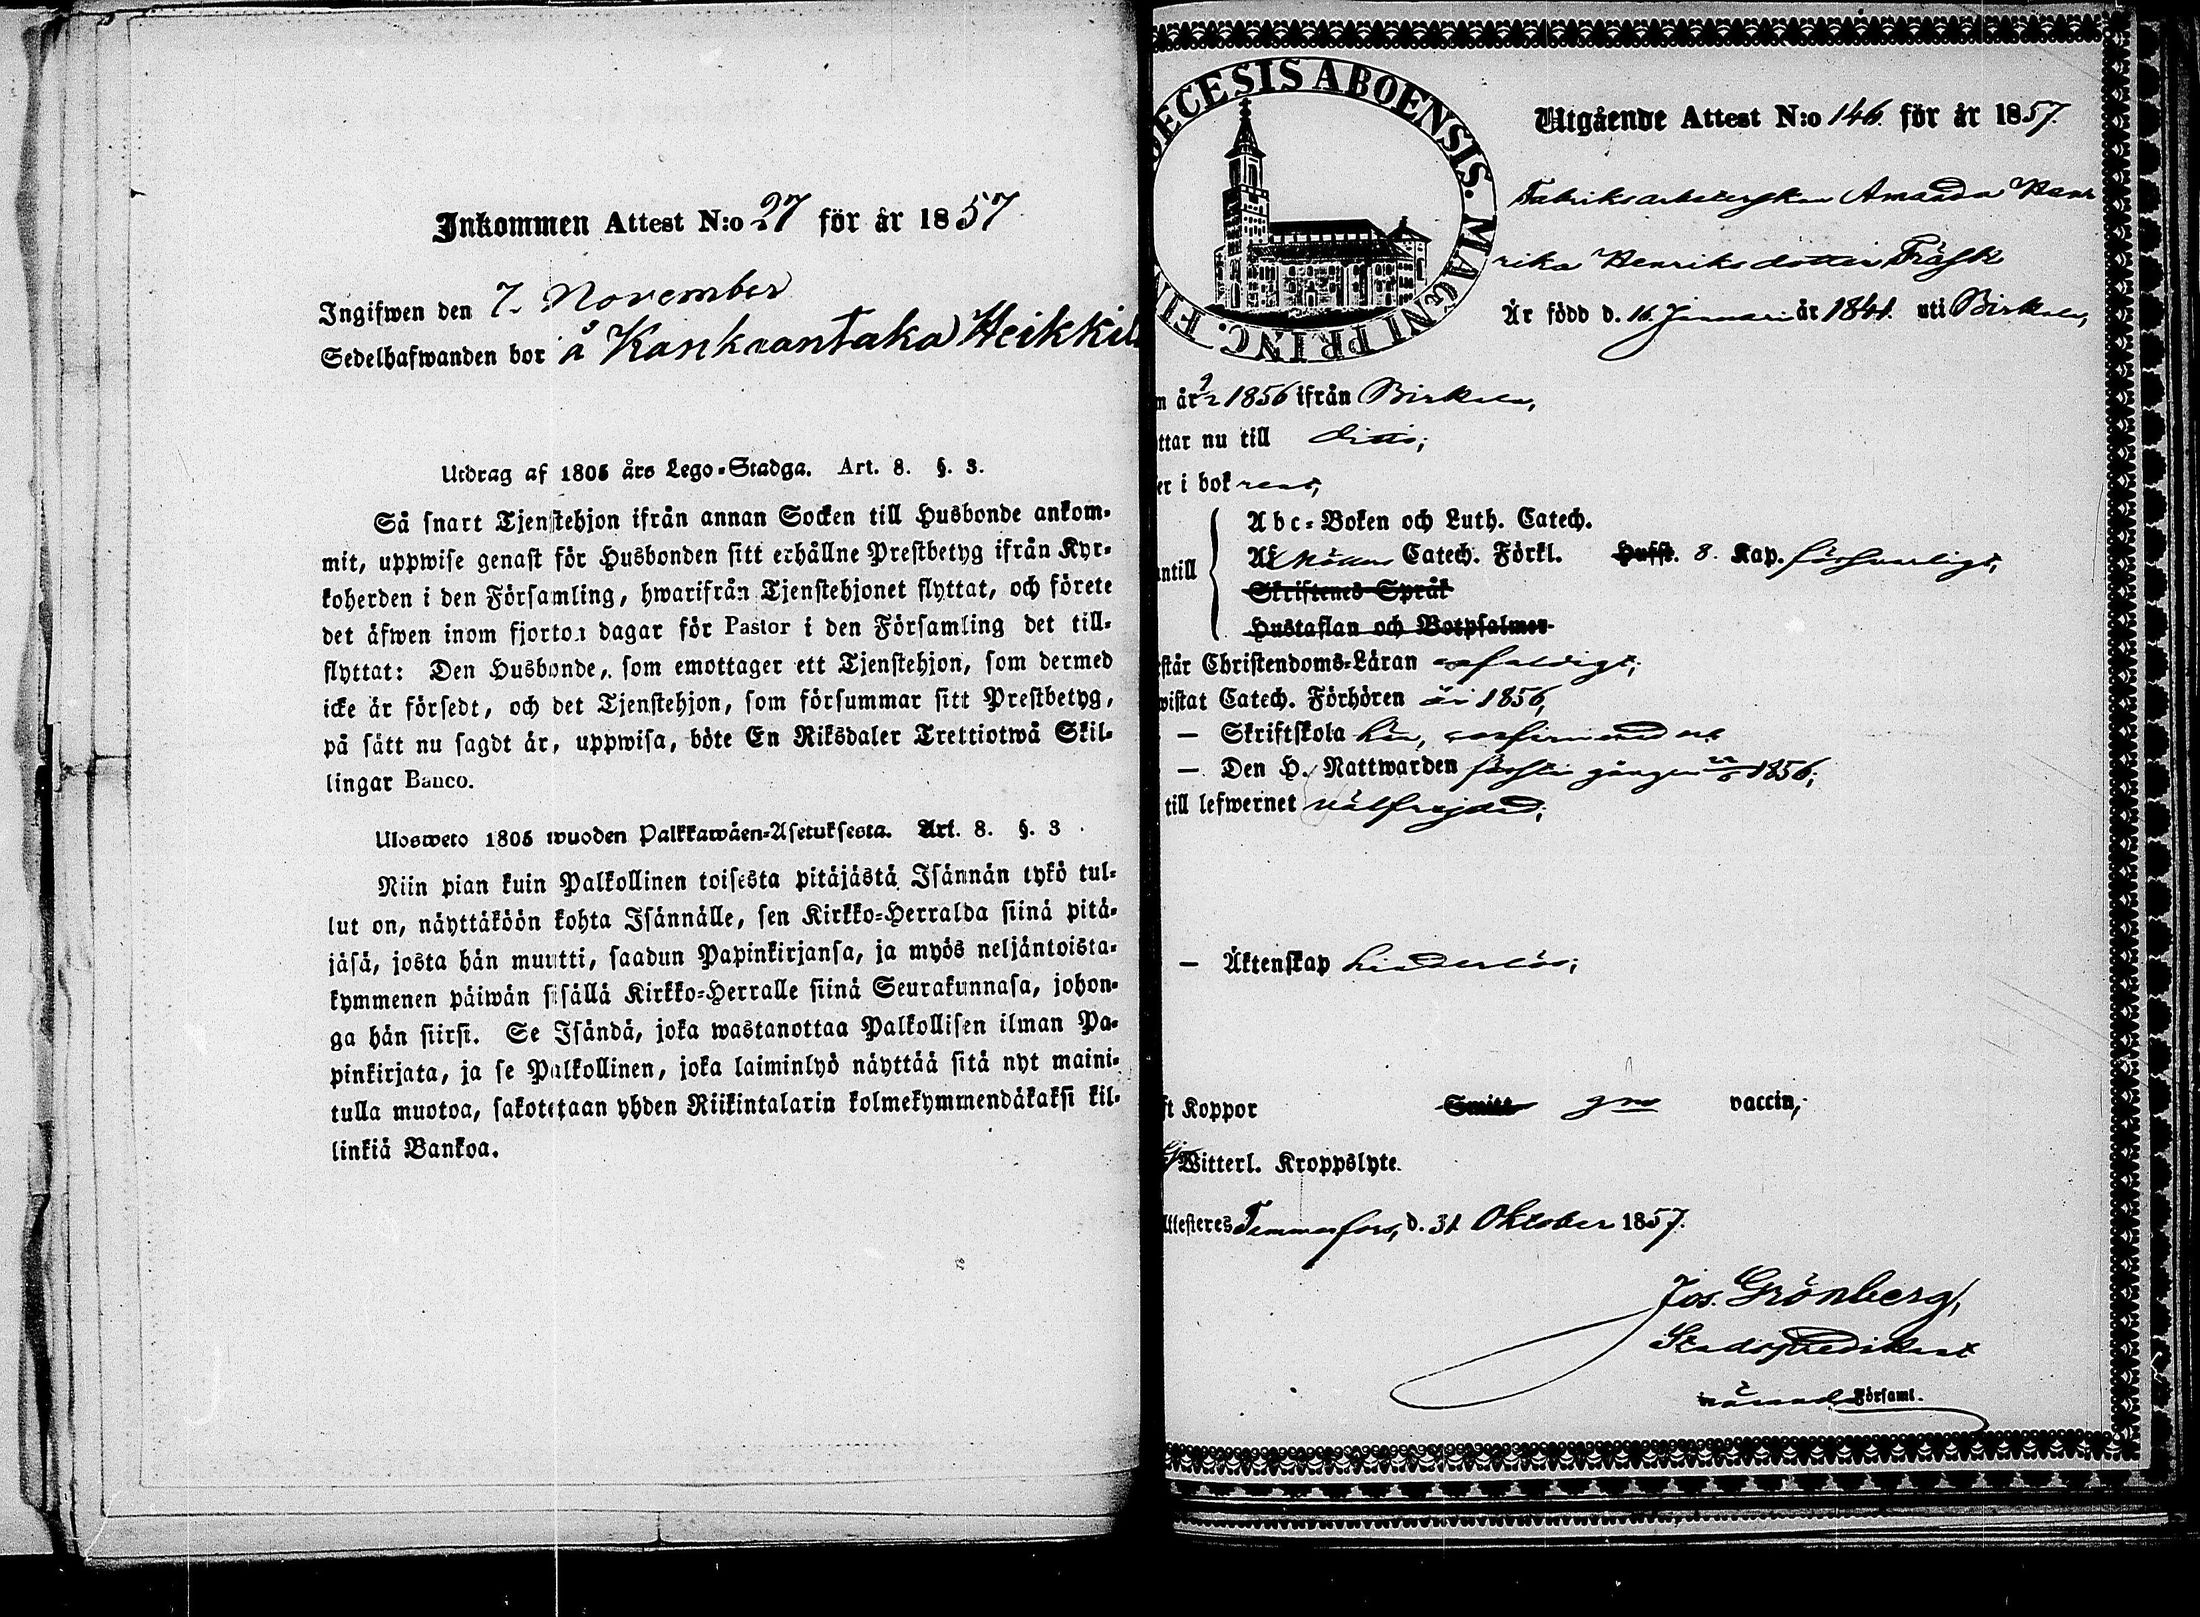 Inkommen Attest N:o 27 för år 1857
Ingifwen den 7. November
Sedelhafwanden bor å Kankaantaka Heikkilä
Utdrag af 1805 års Lego-Stadga. Art. 8. §. 3.
Så snart Tjenstehjon ifrån annan Socken till Husbonde ankom-
mit, uppwise genast för Husbonden sitt erhållne Prestbetyg ifrån Kyr-
koherden i den Församling, hwarifrån Tjenstehjonet flyttat, och förete
det äfwen inom fjorton dagar för Pastor i den Församling det till-
flyttat: Den Husbonde, som emottager ett Tjenstehjon, som dermed
icke är försedt, och det Tjenstehjon, som försummar sitt Prestbetyg,
på sätt nu sagdt är, uppwisa, böte En Riksdaler Trettiotwå Skil-
lingar Banco.
Ulosweto 1805 wuoden Palkkawäen-Asetuksesta. Art. 8. §. 3
Niin pian kuin Palkollinen toisesta pitäjästä Isännän tykö tul-
lut on, näyttäköön kohta Isännälle, sen Kirkko-Herralda siinä pitä-
jäsä, josta hän muutti, saadun Papinkirjansa, ja myös neljäntoista-
kymmenen päiwän sisällä Kirkko-Herralle siinä Seurakunnasa, johon-
ga hän siirsi. Se Isändä, joka wastanottaa Palkollisen ilman Pa-
pinkirjata, ja se Palkollinen, joka laiminlyö näyttää sitä nyt maini-
tulla muotoa, sakotetaan yhden Riikintalarin kolmekymmendäkaksi kil-
linkiä Bankoa.
ECESIS ABOENSIS. MAGNI PRINC. FIN
Utgående Attest N:o 146. för år 1857.
Fabriksarbeterskan Amanda Hen
rika Henriksdotter Träsk
Är född d. 16 Januari år 1841. uti Birkala,
n år 9/2 1856 ifrån Birkala,
ttar nu till ditto;
er i bok rent,
Abc-Boken och Luth. Catech.
antill Af Möllers Catech. Förkl. Husst. 8. Kap. försvarligt,
Skriftenes Språk
Hustaflan och Botpsalmer
står Christendoms-Läran enfaldigt;
wistat Catech. Förhören år 1856,
— Skriftskola här, confirmerad och
— Den H. Nattwarden första gången 1856;
till lefwernet välfrejdad;
— Äktenskap hinderlös;
ft Koppor Smitt gm vaccin,
Witterl. Kroppslyte.
ttesteres Tammerfors, d. 31 Oktober 1857.
Jos. Grönberg,
Stadspredikant
Församl.